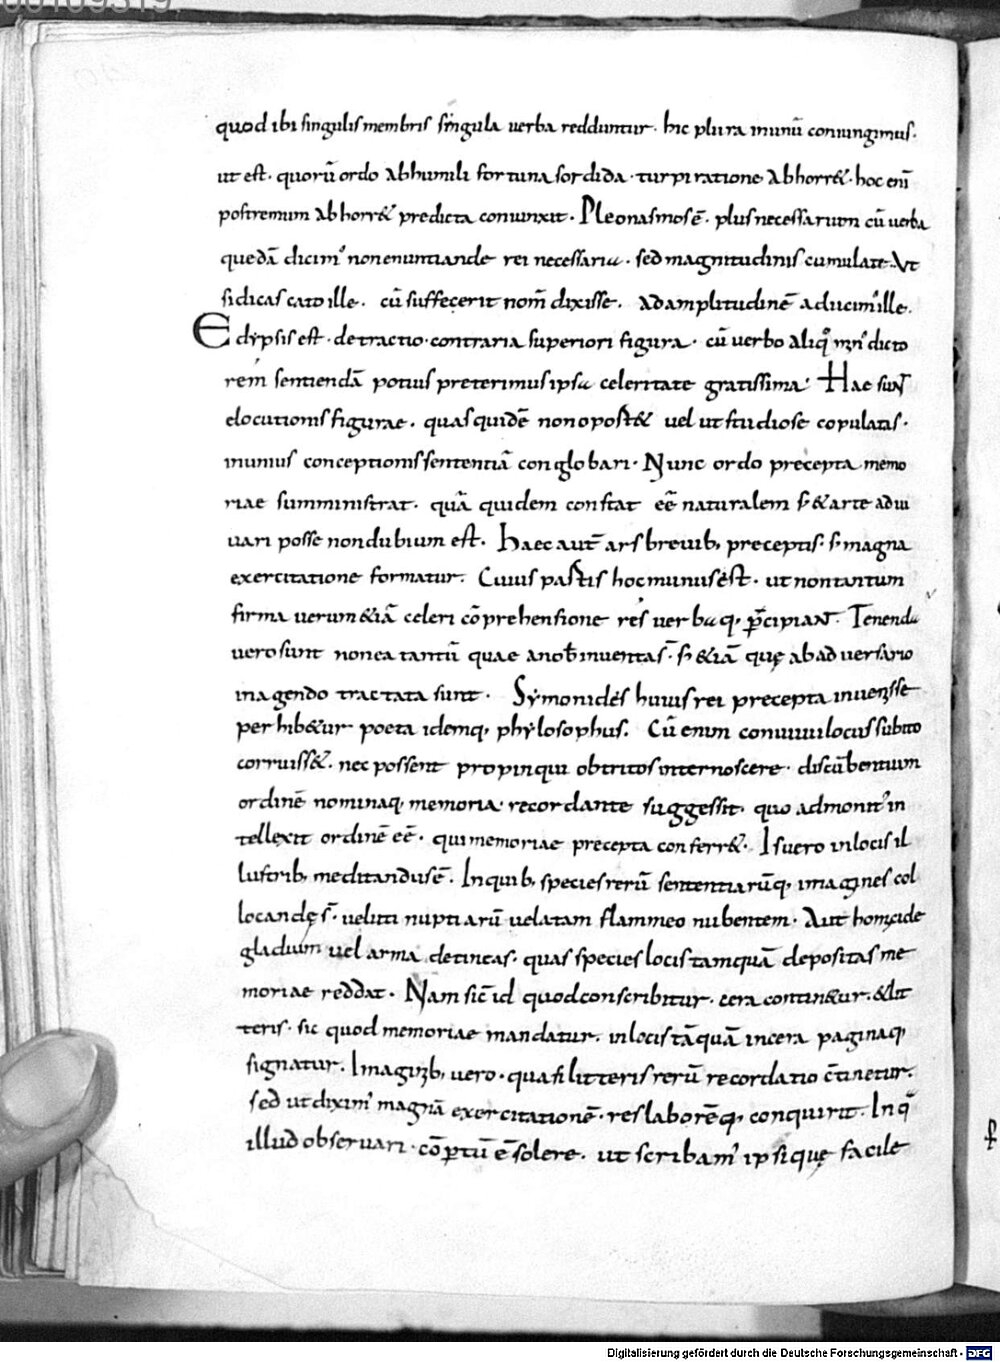 quod ibi singulis membris singula verba redduntur. hic plura in unū coniungimus.
ut est. quorū ordo abhumili fortuna sordida. turpi ratione abhorr&. hoc enī
postremum abhorr& predicta coniunxit. Pleonasmos ē. plus necessarium cū verba
quedā dicim' non enuntiande rei necessaria. sed magnitudinis cumulate. Ut
si dicas cato ille. cū suffecerit nom̄ dixisse. ad amplitudinē aducim' ille.
Eclypsis est. detractio. contraria superiori figura. cū verbo aliq dicto
rem sentiendā potius preterimus ipsa celeritate gratissima. Hae sunt
elocutionis figurae. quas quidē non oport& velut studiose copulatis.
in unius conceptionis sententiā conglobari. Nunc ordo precepta memo
riae sumministrat. quā quidem constat eē naturalem s; & arte adiu
uari posse non dubium est. Haec aut̄ ars brevib; preceptis. s; magna
exercitatione formatur. Cuius partis hoc munus est. ut non tantum
firma verum &iā celeri cōprehensione res verbaq; p̄cipiant. Tenenda
vero sunt non ea tantū quae a nob̄ inventa s̄. s; &iā quę ab adversario
in agendo tractata sunt. Symonides huius rei precepta invenisse
perhib&ur poeta idemq; phylosophus. Cū enim convivii locus subito
corruiss&. nec possent propinqui obtritos internoscere. discūbentium
ordinē nominaq; memoria recordante suggessit. quo admonit' in
tellexit ordinē eē. qui memoriae precepta conferr&. Is vero in locis il
lustrib; meditandus ē. In quib; species rerū sententiarūq; imagines col
locandę s̄. veluti nuptiarū velatam flammeo nubentem. Aut homicide
gladium vel arma detineas. quas species locis tamquā depositas me
moriae reddat. Nam sic̄ id quod conscribitur. cera contin&ur. & lit
teris. sic quod memoriae mandatur. in locis tāquā in cera paginaq;
signatur. Imaginib; vero. quasi litteris rerū recordatio c̄tinetur.
sed ut dixim' magnā exercitationē. res laborēq; conquirit. In q̄
illud observari. cōp̄tū ē solere. ut scribam' ipsi quę facile
Digitalisierung gefördert durch die Deutsche Forschungsgemeinschaft - DFG